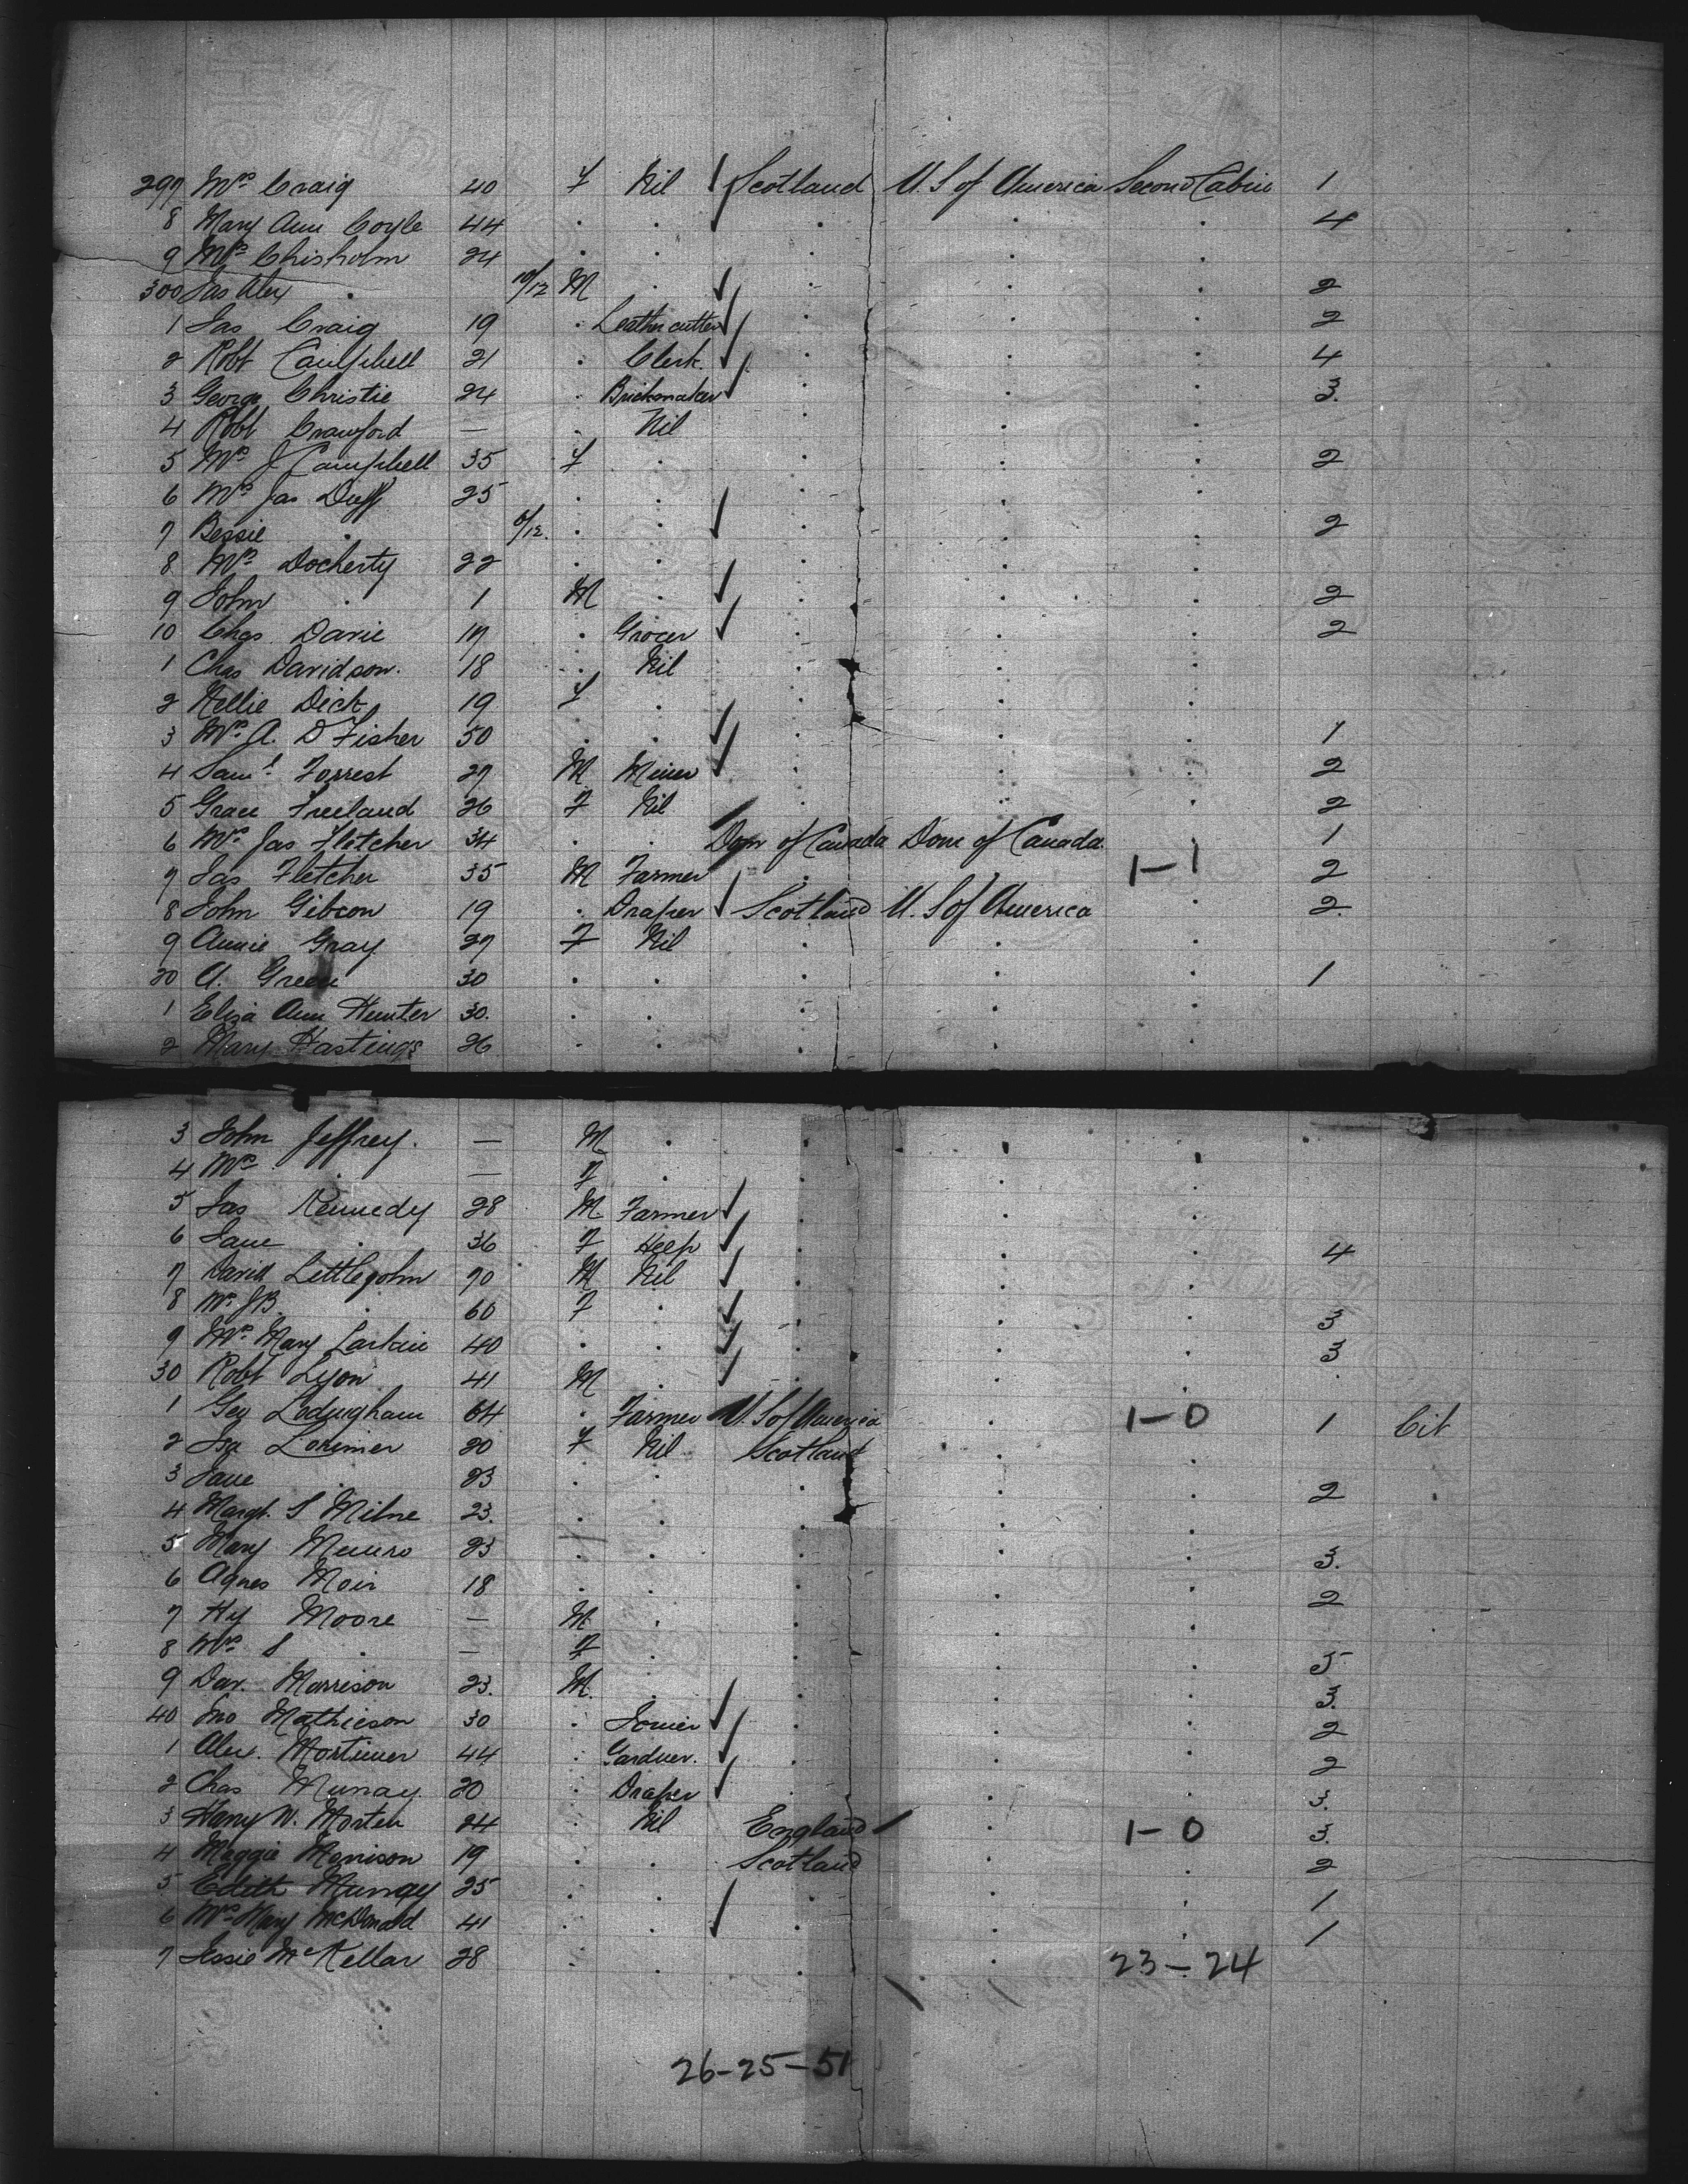 297 Mrs Craig 40 F Nil Scotland U. S of America Second Cabin 1
8 Mary Ann Coyle 44 . . . . . 4
9 Mrs Chisholm 24 . . . . .
300 Jas Alex . 10/12 M . . . . 2
1 Jas Craig 19 . Leather cutter . . . 2
2 Robt Campbell 21 . Clerk . . . 4
3 George Christie 24 . Brickmaker . . . 3.
4 Robt Crawford — . Nil . . .
5 Mrs J Campbell 35 F . . . . 2
6 Mrs Jas Duff 25 . . . . .
7 Bessie . /12 . . . . . 2
8 Mrs Docherty 22 . . . . .
9 John . 1 M . . . . 2
10 Chas Davie 17 . Grocer . . . 2
1 Chas Davidson. 18 . Nil . . .
2 Nellie Dick 19 F . . . .
3 Mrs A. D Fisher 50 . . . . . 1
4 Saml Forrest 27 M Miner . . . 2
5 Grace Freeland 26 F Nil . . . 2
6 Mrs Jas Fletcher 34 . . Dom of Canada Dom of Canada. 1
7 Jas Fletcher 35 M Farmer . . 1-1 2
8 John Gibson 19 . Draper Scotland U. S of America . 2.
9 Annie Gray 27 F Nil . . .
20 A. Green 30 . . . . . 1
1 Eliza Ann Hunter 30. . . . . .
2 Mary Hastings 26 . . . . .
3 John Jeffrey. — M . . . .
4 Mrs . — F . . . .
5 Jas Kennedy 28 M Farmer . . .
6 Jane . 36 F Help . . . 4
7 David Littlejohn 70 M Nil . . .
8 Mrs J B. . 60 F . . . . 3
9 Mrs Mary Larkin 40 . . . . . 3
30 Robt Lyon 41 M . . . . .
1 Geo Lodingham 64 . Farmer U. S of America . 1-0 1 Cit
2 Isa Lorimer 20 F Nil Scotland . .
3 Jane . 23 . . . . . 2
4 Margt. S Milne 23. . . . . .
5 Mary Munro 23 . . . . . 3.
6 Agnes Moir 18 . . . . . 2
7 Hy Moore — M . . . .
8 Mrs S . — F . . . . 5
9 Dav. Morrison 23. M. . . . . 3.
40 Jno Mathieson 30 . Joiner . . . 2
1 Alex. Mortimer 44 . Gardner. . . . 2
2 Chas Murray. 20 . Draper . . . 3.
3 Harry W. Morten 24 . Nil England . 1-0 3.
4 Maggie Morrison 19 . . Scotland . . 2
5 Edith Murray 25 . . . . . 1
6 Mrs Mary McDonald 41 . . . . . 1
7 Jessie McKellar 28 . . . .
23-24
26-25-51